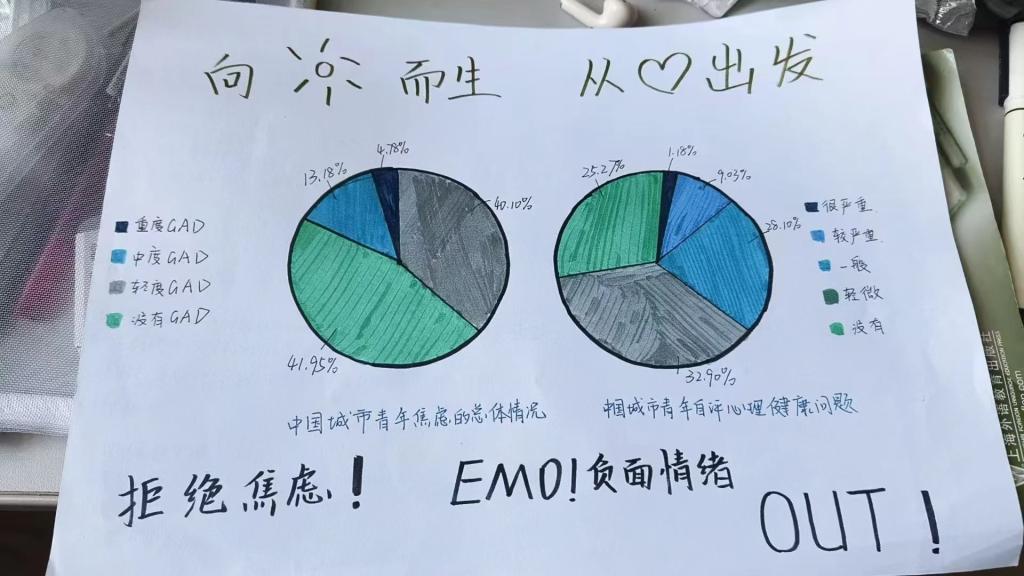 向 而生 从♡出发
4.78%
13.18%
40.10%
41.95%
重度GAD
中度GAD
轻度GAD
没有GAD
中国城市青年焦虑的总体情况
1.18%
25.27%
9.03%
28.10%
32.90%
很严重
较严重
一般
轻微
没有
中国城市青年自评心理健康问题
拒绝焦虑！
EMO!负面情绪
OUT！
上海外语教育出版社